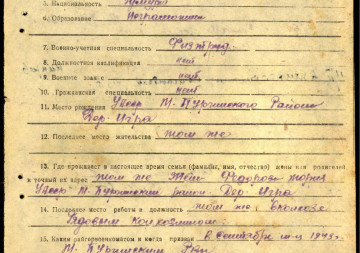 5. Национальность Удмурт
6. Образование Неграмотный
7. Военно-учетная специальность Физтруд
8. Должностная квалификация нет
9. Военное звание нет
10. Гражданская специальность нет
11. Место рождения М-Пургинского Района
Дер. Игра
12. Последнее место жительства там же
13. Где проживает в настоящее время семья (фамилия, имя, отчество) жены или родителей
и точный их адрес там же Жена Федорова Мария
М-Пургинский район Дер. Игра
14. Последнее место работы и должность там же, в колхозе
Рядовым Колхозником
15. Каким райгорвоенкоматом и когда призван в Сентябре м-ц 1943 г.
М. Пургинским Рвк